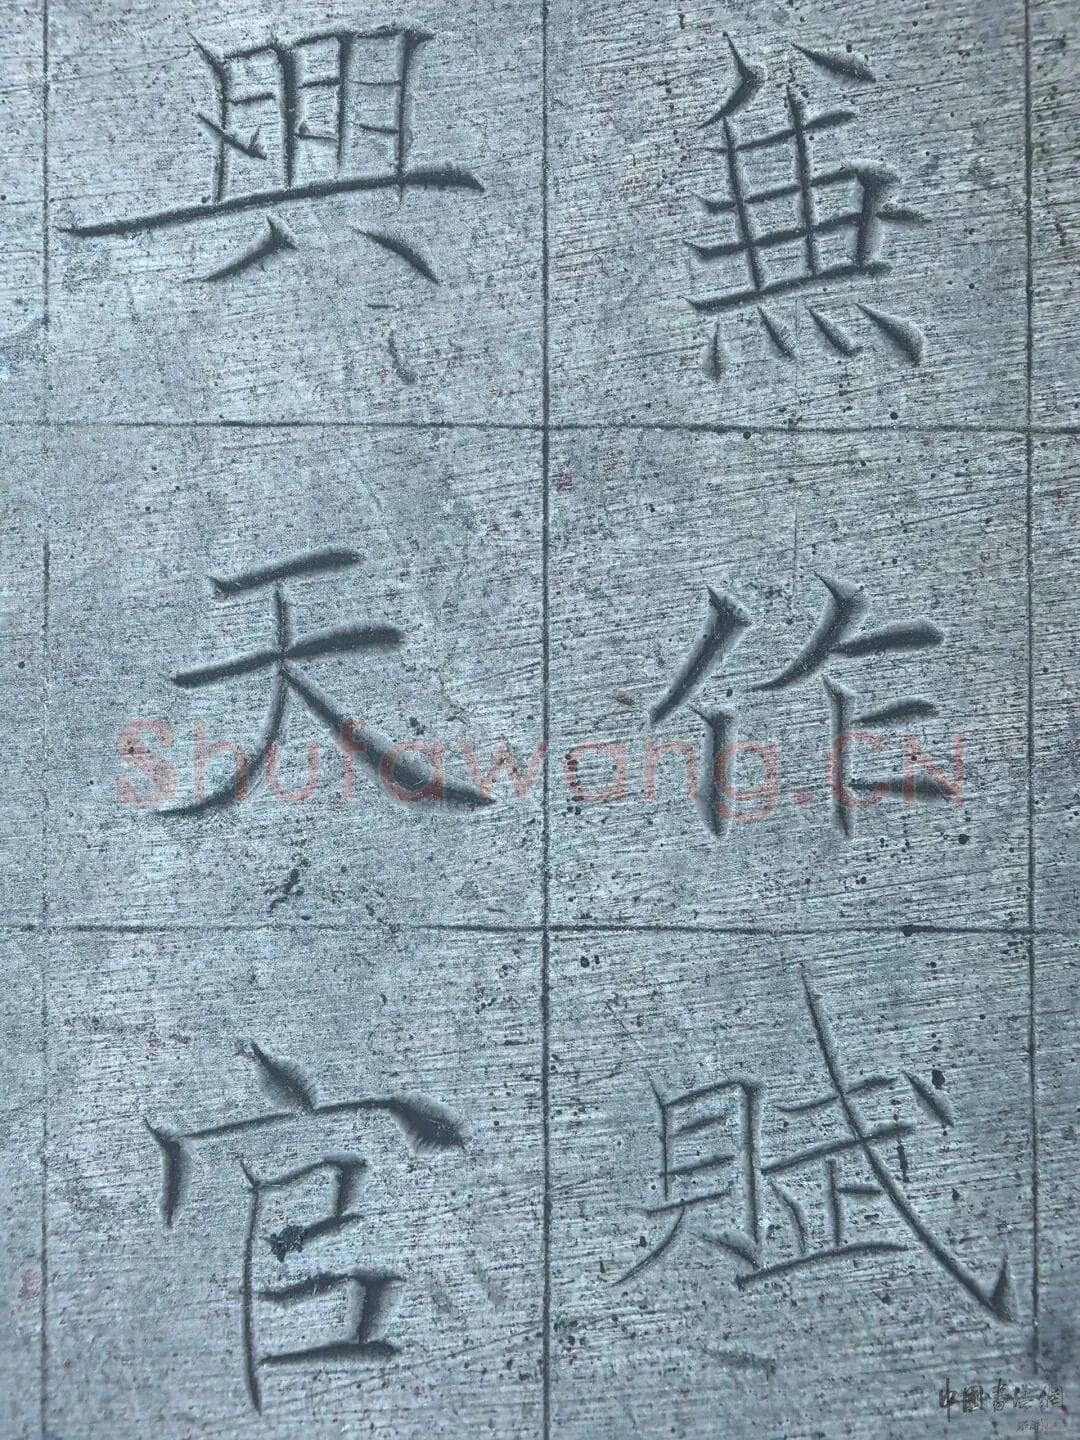 兼作賦
興天官
Shufawang.CN
中國書法網